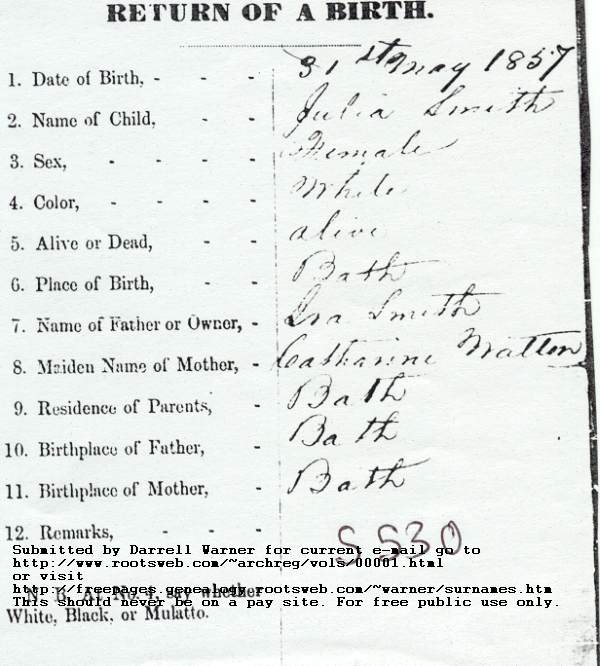 RETURN OF A BIRTH.
1. Date of Birth, - - - 31st May 1857
2. Name of Child, - - Julia Smith
3. Sex, - - - - Female
4. Color, - - - - White
5. Alive or Dead, - - alive
6. Place of Birth, - - Bath
7. Name of Father or Owner, - Ira Smith
8. Maiden Name of Mother, - Catharine
9. Residence of Parents, - Bath
10. Birthplace of Father, - Bath
11. Birthplace of Mother, - Bath
12. Remarks, - - - S S30
Submitted by Darrell Warner for current e-mail go to
http://www.rootsweb.com/~archreg/vols/00001.html
or visit
http://freepages.genealogy.rootsweb.com/~warner/surnames.htm
N. B. At No. 4, say whether
This should never be on a pay site. For free public use only.
White, Black, or Mulatto.